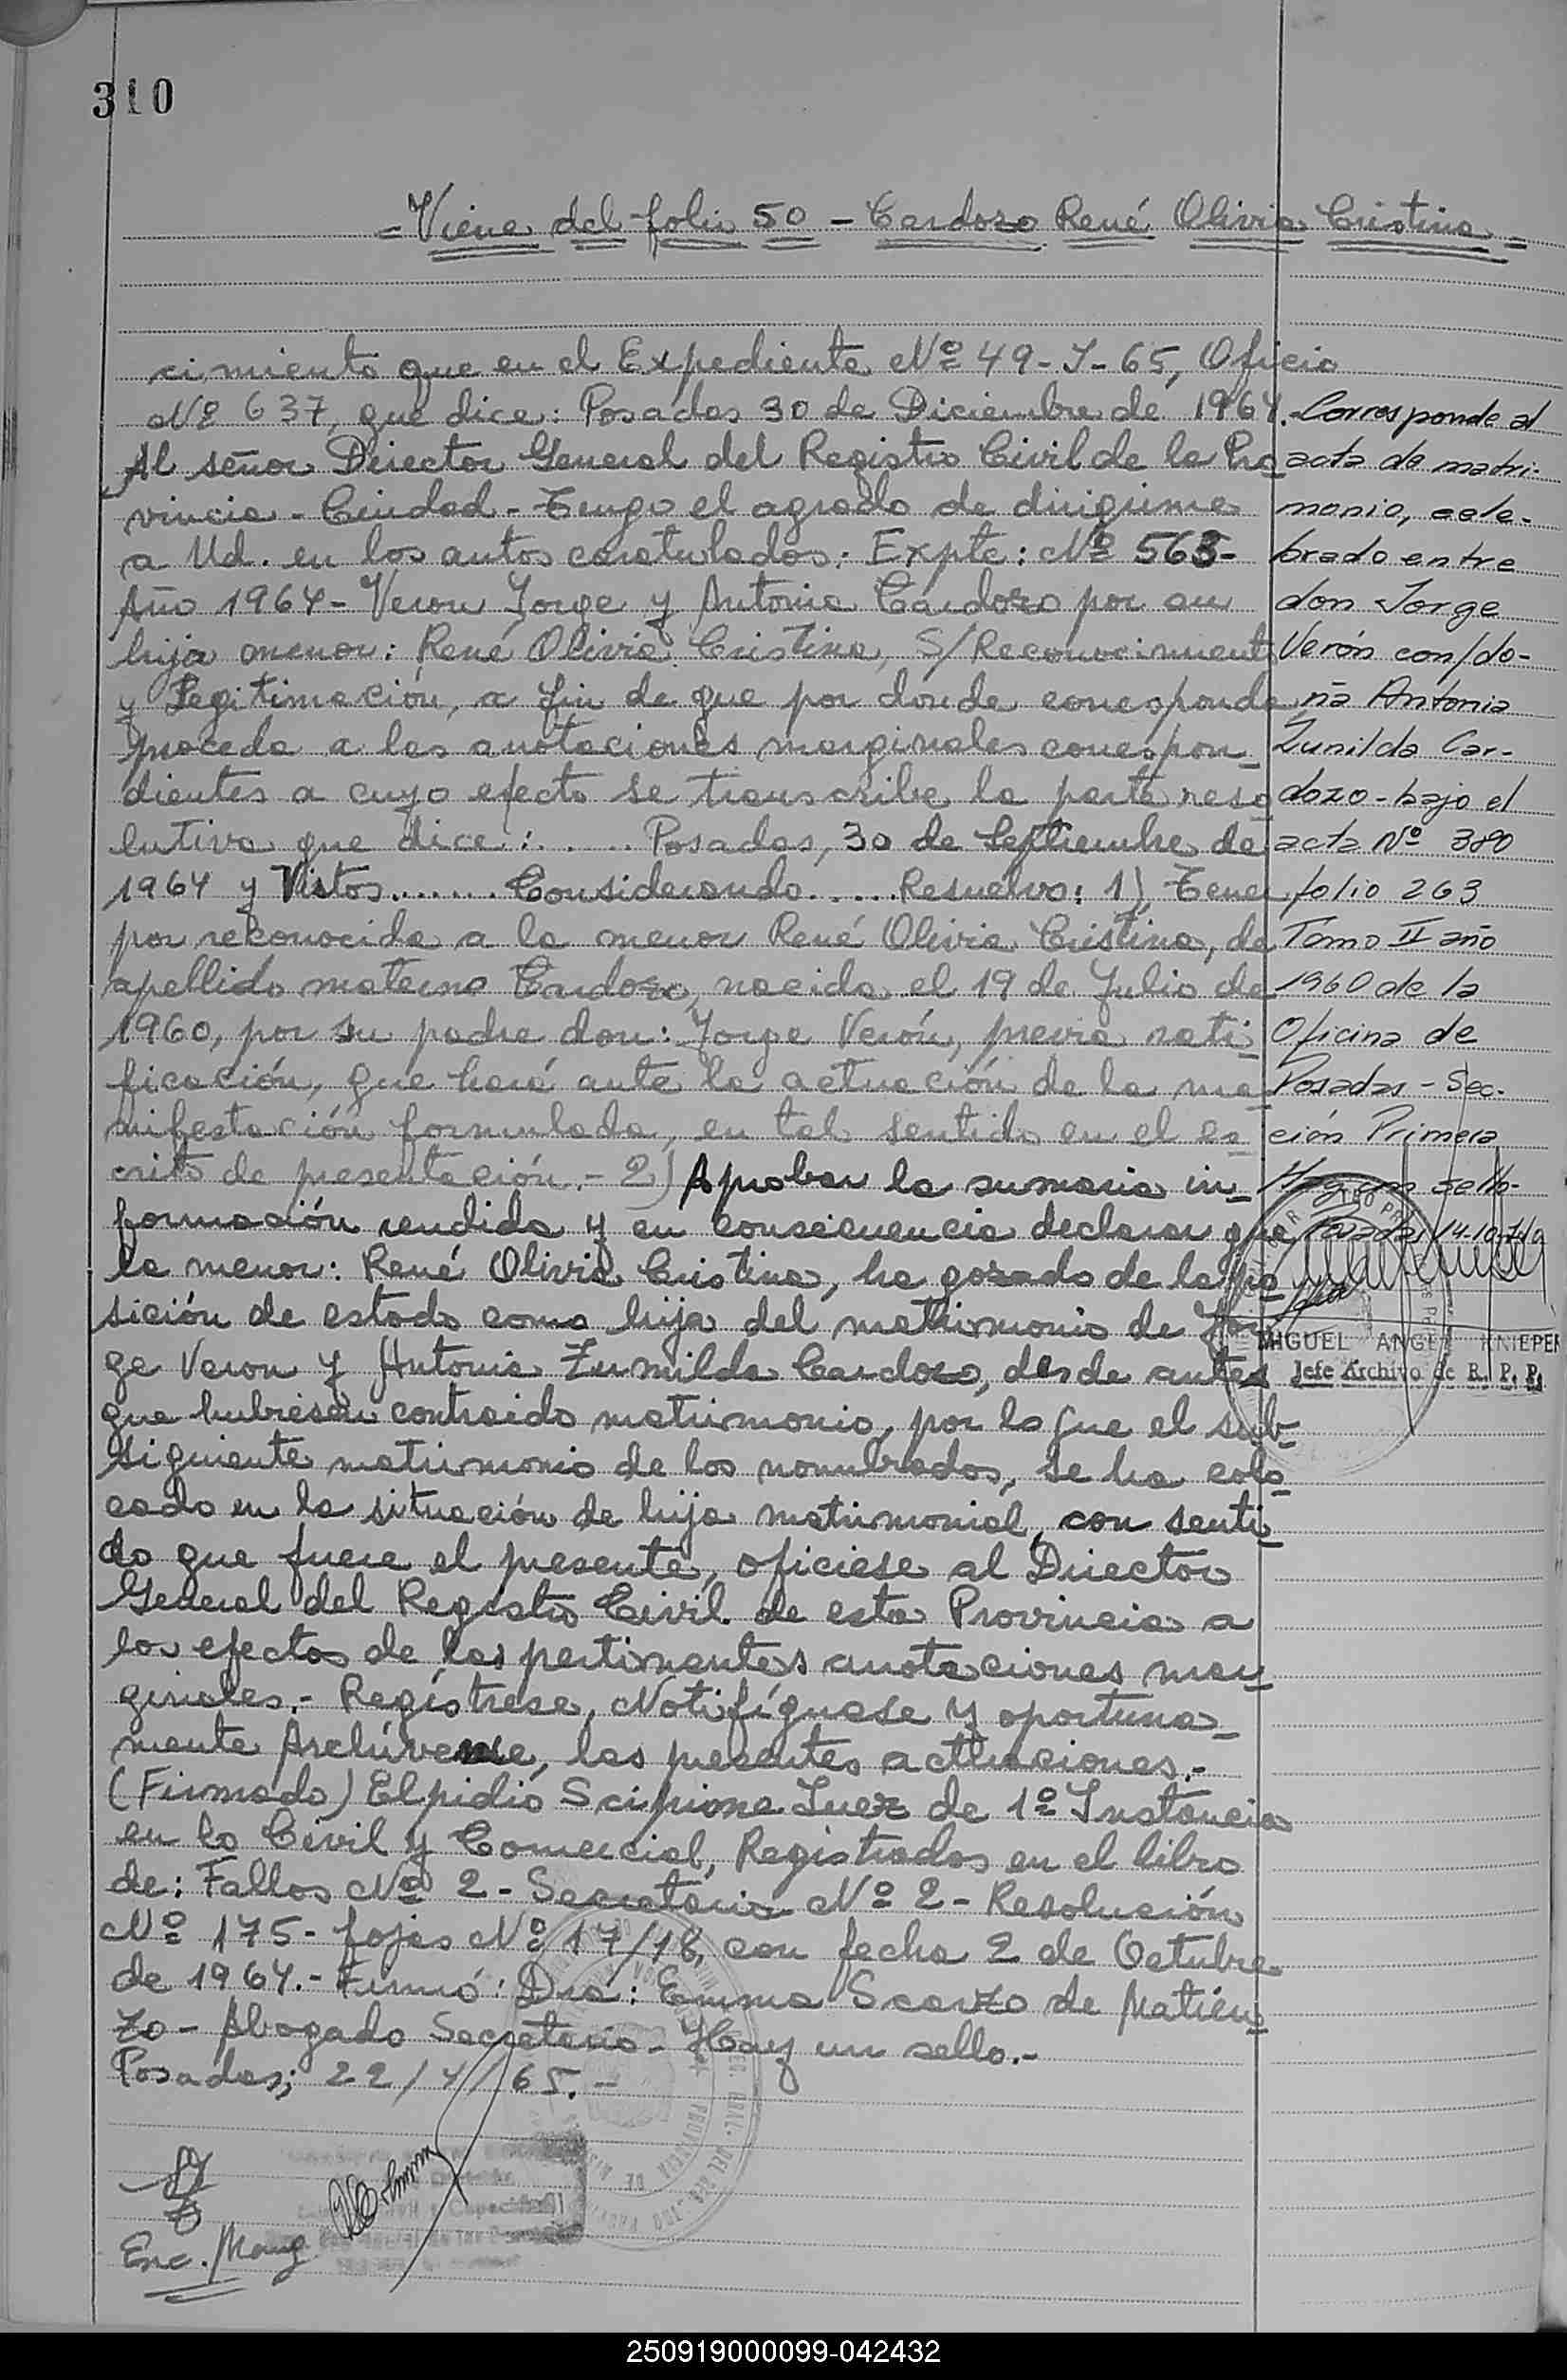 310
= Viene del folio 50 - Cardozo René Olivia Cristina =
cimiento que en el Expediente Nº 49-J-65, Oficio
Nº 637, que dice: Posadas 30 de Diciembre de 1964.
Al señor Director General del Registro Civil de la Pro
vincia - Ciudad - Tengo el agrado de dirigirme
a Ud. en los autos caratulados: Expte: Nº 563-
Año 1964 - Veron Jorge y Antonia Cardozo por su
hija menor: René Olivia Cristina, S/Reconocimiento
y Legitimación, a fin de que por donde corresponda,
proceda a las anotaciones marginales correspon-
dientes a cuyo efecto se transcribe la parte reso
lutiva que dice: ..... Posadas, 30 de Septiembre de
1964 y Vistos ....... Considerando ..... Resuelvo: 1) Tener
por reconocida a la menor René Olivia Cristina, de
apellido materno Cardozo, nacida el 19 de Julio de
1960, por su padre don: Jorge Verón, previa rati-
ficación, que hará ante la actuación de la ma-
nifestación formulada, en tal sentido en el es
crito de presentación.- 2) Aprobar la sumaria in-
formación rendida y en consecuencia declarar que
la menor: René Olivia Cristina, ha gozado de la po
sición de estado como hija del matrimonio de Jor
ge Veron y Antonia Zunilda Cardozo, desde antes
que hubiesen contraido matrimonio, por lo que el sub-
siguiente matrimonio de los nombrados, se ha colo-
cado en la situación de hija matrimonial, con senti-
do que fuere el presente, oficiese al Director
General del Registro Civil de esta Provincia a
los efectos de las pertinentes anotaciones mar-
ginales.- Regístrese, Notifíquese y oportuna-
mente Archívense, las presentes actuaciones.-
(Firmado) Elpidio Scipione Juez de 1º Instancia
en lo Civil y Comercial, Registrados en el libro
de: Fallos Nº 2 - Secretaria Nº 2 - Resolución
Nº 175 - fojas Nº 17/18, con fecha 2 de Octubre
de 1964.- Firmó: Dra: Emma Scarzo de Matien-
zo - Abogado Secretario - Hay un sello.-
Posadas; 22/4/65.-
Enc. Marg
Corresponde al
acta de matri-
monio, cele-
brado entre
don Jorge
Verón con/do-
ña Antonia
Zunilda Car-
dozo - bajo el
acta Nº 380
folio 263
Tomo II año
1960 de la
Oficina de
Posadas - Sec-
ción Primera
Hay un sello-
Posadas 14-10-
MIGUEL ANGEL KNIEPER
Jefe Archivo de R. P. P.
250919000099-042432